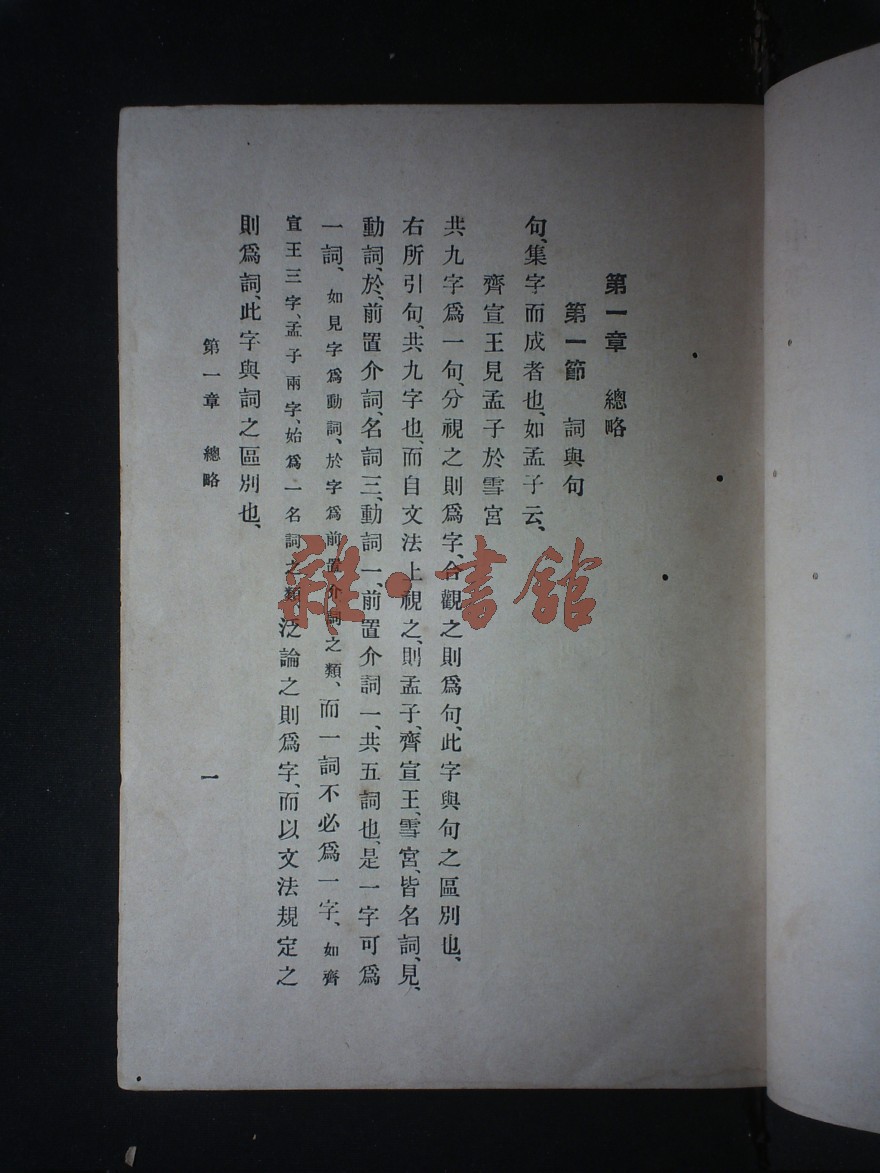 第一章　總略
第一節　詞與句
句、集字而成者也、如孟子云、
齊宣王見孟子於雪宮
共九字爲一句、分視之則爲字、合觀之則爲句、此字與句之區別也、
右所引句、共九字也、而自文法上視之、則孟子、齊宣王、雪宮、皆名詞、見、
動詞、於、前置介詞、名詞三、動詞一、前置介詞一、共五詞也、是一字可爲
一詞、如見字爲動詞、於字爲前置介詞之類、而一詞不必爲一字、如齊
宣王三字、孟子兩字、始爲一名詞之類、泛論之則爲字、而以文法規定之
則爲詞、此字與詞之區別也、
第一章　總略
一
雜·書館